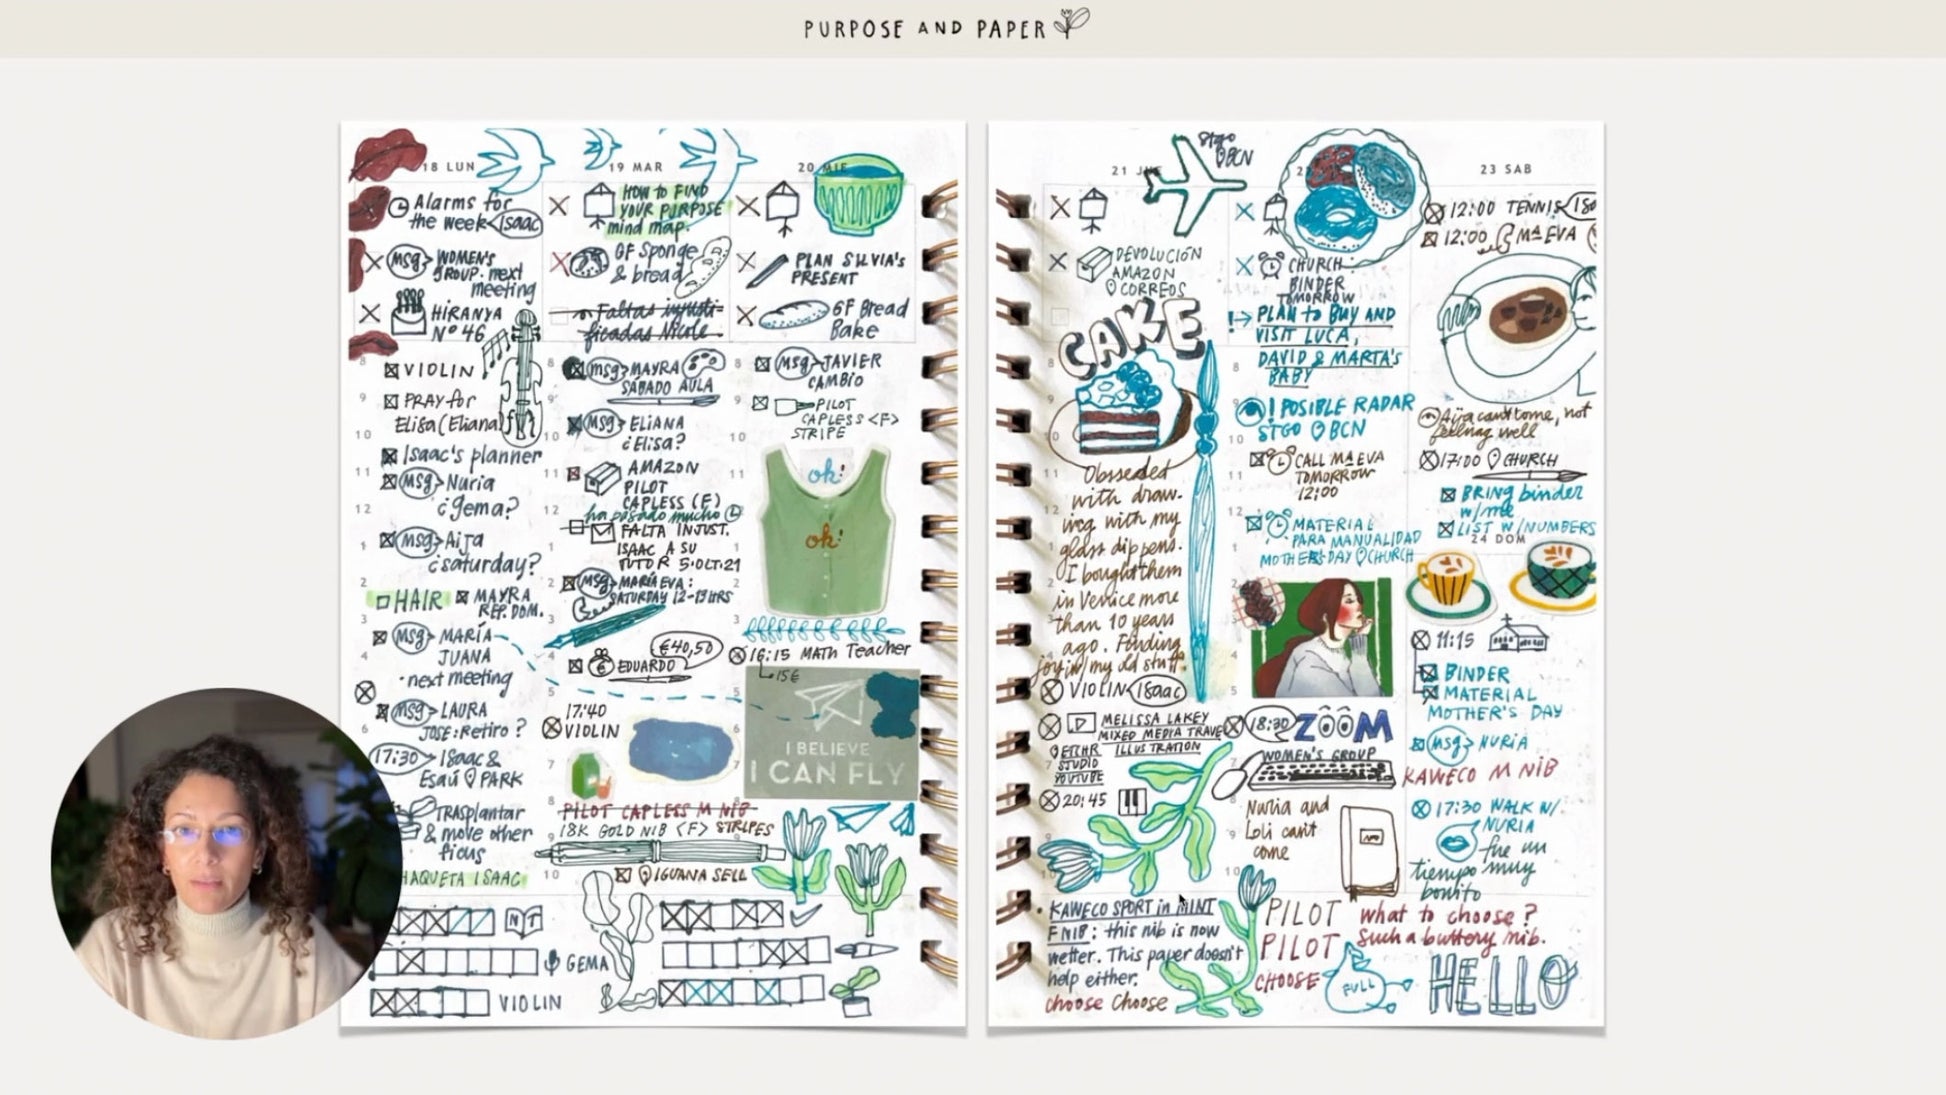 PURPOSE AND PAPER
18 LUN
Alarms for
the week Isaac
msg WOMEN'S
GROUP. next
meeting
HIRANYA
Nº 46
8 VIOLIN
9 PRAY for
Elisa (Eliana)
10
Isaac's planner
11 msg Nuria
¿gema?
12
1 msg Aija
¿saturday?
2
HAIR MAYRA
REP. DOM.
3
msg MARÍA
4 JUANA
next meeting
msg LAURA
JOSE: Retiro?
17:30 ISAAC &
Esaú PARK
TRASplantar
& move other
ficus
HAQUETA ISAAC
NT
GEMA
VIOLIN
19 MAR
HOW to FIND
YOUR PURPOSE
mind map.
GF Sponge
& bread
Faltas injusti-
ficadas Nicole
8 msg MAYRA
SÁBADO AULA
9 msg ELIANA
10 ¿Elisa?
11 AMAZON
PILOT
CAPLESS (F)
12 ha pasado mucho
FALTA INJUST.
1 ISAAC A SU
TUTOR 5·OCT·21
2 msg MARÍA EVA:
SATURDAY 12-13HRS
3
€40,50
4 EDUARDO
5
17:40
6 VIOLIN
7
8 PILOT CAPLESS M NIB
9 18K GOLD NIB <F> STRIPES
10 IGUANA SELL
20 MIE
PLAN SILVIA'S
PRESENT
GF Bread
Bake
8 msg JAVIER
CAMBIO
9 PILOT
CAPLESS <F>
10 STRIPE
11 ok!
12
ok!
1
2
3
16:15 MATH Teacher
15€
5
6
I BELIEVE
7 I CAN FLY
21
STGO
BCN
DEVOLUCIÓN
AMAZON
CORREOS
CAKE
Obsseded
with draw-
ing with my
glass dip pens.
I bought them
in Venice more
than 10 years
ago. Finding
joy in my old stuff.
VIOLIN Isaac
MELISSA LAKEY
MIXED MEDIA TRAVEL
ILLUSTRATION
ETCHR
STUDIO
YOUTUBE
20:45
KAWECO SPORT in MINT
F NIB: this nib is now
wetter. This paper doesn't
help either.
choose Choose
CHURCH:
BINDER
TOMORROW
PLAN to BUY AND
VISIT LUCA,
8 DAVID & MARTA'S
BABY
9 ! POSIBLE RADAR
STGO BCN
10
CALL Mª EVA
11 TOMORROW
12:00
12 MATERIAL
PARA MANUALIDAD
1 MOTHER'S DAY CHURCH
2
3
5
18:30 ZOOM
WOMEN'S GROUP
Nuria and
Loli can't
come
10
PILOT
PILOT
CHOOSE
what to choose?
Such a buttery nib.
FULL
HELLO
23 SAB
12:00 TENNIS
12:00 Mª EVA
Aija can't come, not
feeling well
17:00 CHURCH
BRING binder
w/me
LIST W/NUMBERS
24 DOM
11:15
BINDER
MATERIAL
MOTHER'S DAY
msg NURIA
KAWECO M NIB
17:30 WALK W/
NURIA
fue un
tiempo muy
bonito